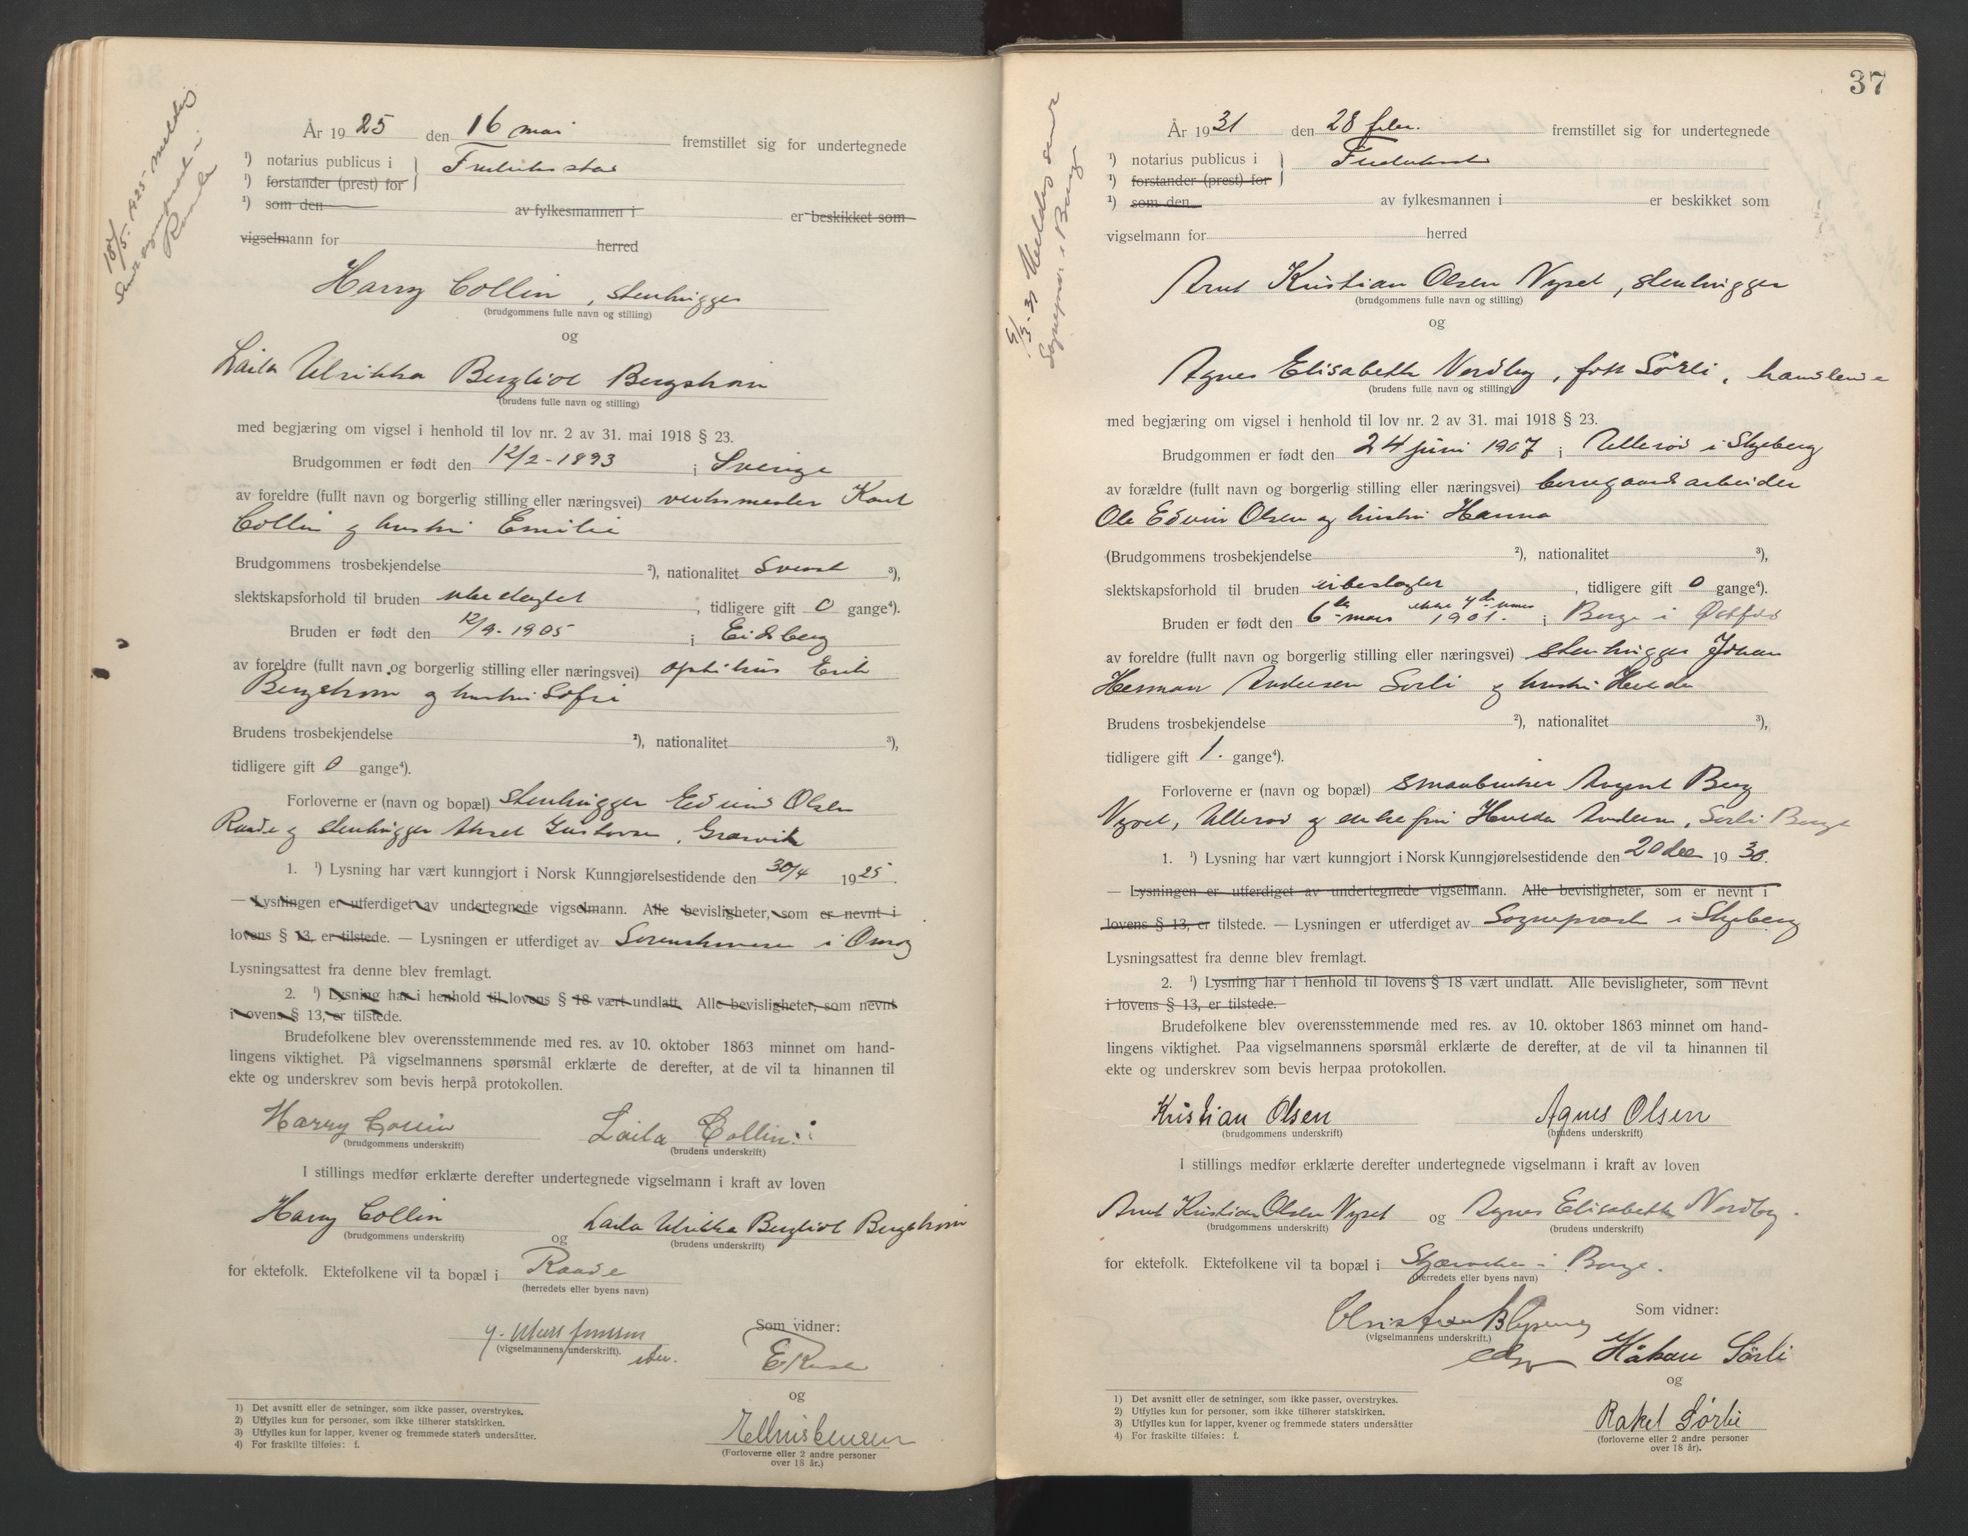 År 1925 den 16 mai fremstillet sig for undertegnede
¹) notarius publicus i } Fredriksstad
¹) forstander (prest) for
¹) som den av fylkesmannen i er beskikket som
vigselmann for herred
Harry Collin, stenhugger
(brudgommens fulle navn og stilling)
og
Laila Ulrikka Bergliot Bergstrøm
(brudens fulle navn og stilling)
med begjæring om vigsel i henhold til lov nr. 2 av 31. mai 1918 § 23.
Brudgommen er født den 12/2-1893 i Sverige
av foreldre (fullt navn og borgerlig stilling eller næringsvei) verksmester Karl
Collin og hustru Emilie
Brudgommens trosbekjendelse ²), nationalitet svensk ³),
slektskapsforhold til bruden ubeslægtet, tidligere gift 0 gange⁴).
Bruden er født den 12/9-1905 i Eidsberg
av foreldre (fullt navn og borgerlig stilling eller næringsvei) optikus Erik
Bergstrøm og hustru Sofie
Brudens trosbekjendelse ²), nationalitet ³),
tidligere gift 0 gange⁴).
Forloverne er (navn og bopæl) stenhugger Edvind Olsen
Raade og stenhugger Aksel Gustavsen, Græsvik
1. ¹) Lysning har vært kunngjort i Norsk Kunngjørelsestidende den 30/4 1925.
— Lysningen er utferdiget av undertegnede vigselmann. Alle bevisligheter, som er nevnt i
lovens § 13, er tilstede. — Lysningen er utferdiget av Sorenskriveren i Onsøy
Lysningsattest fra denne blev fremlagt.
2. ¹) Lysning har i henhold til lovens § 18 vært undlatt. Alle bevisligheter, som nevnt
i lovens § 13, er tilstede.
Brudefolkene blev overensstemmende med res. av 10. oktober 1863 minnet om hand-
lingens viktighet. På vigselmannens spørsmål erklærte de derefter, at de vil ta hinannen til
ekte og underskrev som bevis herpå protokollen.
Harry Collin Laila Collin
(brudgommens underskrift) (brudens underskrift)
I stillings medfør erklærte derefter undertegnede vigselmann i kraft av loven
Harry Collin og Laila Ulrikka Bergliot Bergstrøm
(brudgommens underskrift) (brudens underskrift)
for ektefolk. Ektefolkene vil ta bopæl i Raade
(herredets eller byens navn)
Som vidner:
(vigselmannens underskrift).
og
(Forloverne eller 2 andre personer
over 18 år.)
1) Det avsnitt eller de setninger, som ikke passer, overstrykes.
2) Utfylles kun for personer, som ikke tilhører statskirken.
3) Utfylles kun for lapper, kvener og fremmede staters undersåtter.
4) For fraskilte tilføies: f.
18/5-1925 - Meldt
Sogneprest i
Raade
37
År 1931 den 28 febr. fremstillet sig for undertegnede
¹) notarius publicus i } Fredrikstad
¹) forstander (prest) for
¹) som den av fylkesmannen i er beskikket som
vigselmann for herred
Arnt Kristian Olsen Nyset, stenhugger
(brudgommens fulle navn og stilling)
og
Agnes Elisabeth Nordby, født Sørli, handlende
(brudens fulle navn og stilling)
med begjæring om vigsel i henhold til lov nr. 2 av 31. mai 1918 § 23.
Brudgommen er født den 24 juni 1907 i Ullerød i Skjeberg
av forældre (fullt navn og borgerlig stilling eller næringsvei) borregaardsarbeider
Ole Edvin Olsen og hustru Hanna
(Brudgommens trosbekjendelse ²), nationalitet ³),
slektskapsforhold til bruden ubeslægtet, tidligere gift 0 gange⁴).
Bruden er født den 6te mars 1901. i Borge i Østfold
av foreldre (fullt navn og borgerlig stilling eller næringsvei) stenhugger Johan
Herman Andersen Sørli og hustru Hulda
Brudens trosbekjendelse ²), nationalitet ³),
tidligere gift 1. gange⁴).
Forloverne er (navn og bopæl) smaabruker August Berg
Nyset, Ullerød og enkefru Hulda Andersen, Sørli Borge
1. ¹) Lysning har vært kunngjort i Norsk Kunngjørelsestidende den 20 dec 1930.
— Lysningen er utferdiget av undertegnede vigselmann. Alle bevisligheter, som er nevnt i
lovens § 13, er tilstede. — Lysningen er utferdiget av Sogneprest i Skjeberg
Lysningsattest fra denne blev fremlagt.
2. ¹) Lysning har i henhold til lovens § 18 vært undlatt. Alle bevisligheter, som nevnt
i lovens § 13, er tilstede.
Brudefolkene blev overensstemmende med res. av 10. oktober 1863 minnet om hand-
lingens viktighet. Paa vigselmannens spørsmål erklærte de derefter, at de vil ta hinannen til
ekte og underskrev som bevis herpaa protokollen.
Kristian Olsen Agnes Olsen
(brudgommens underskrift) (brudens underskrift)
I stillings medfør erklærte derefter undertegnede vigselmann i kraft av loven
Arnt Kristian Olsen Nyset og Agnes Elisabeth Nordby.
(brudgommens underskrift) (brudens underskrift)
for ektefolk. Ektefolkene vil ta bopæl i Skjærviken i Borge.
(herredets eller byens navn)
Som vidner:
(vigselmannens underskrift.)
Håkan Sørli
og
Rakel Sørli
(forloverne eller 2 andre personer
over 18 år).
1) Det avsnitt eller de setninger, som ikke passer, overstrykes.
2) Utfylles kun for personer, som ikke tilhører statskirken.
3) Utfylles kun for lapper, kvener og fremmede staters undersåtter
4) For fraskilte tilføies: f.
Meldt
Sogneprest i Borge